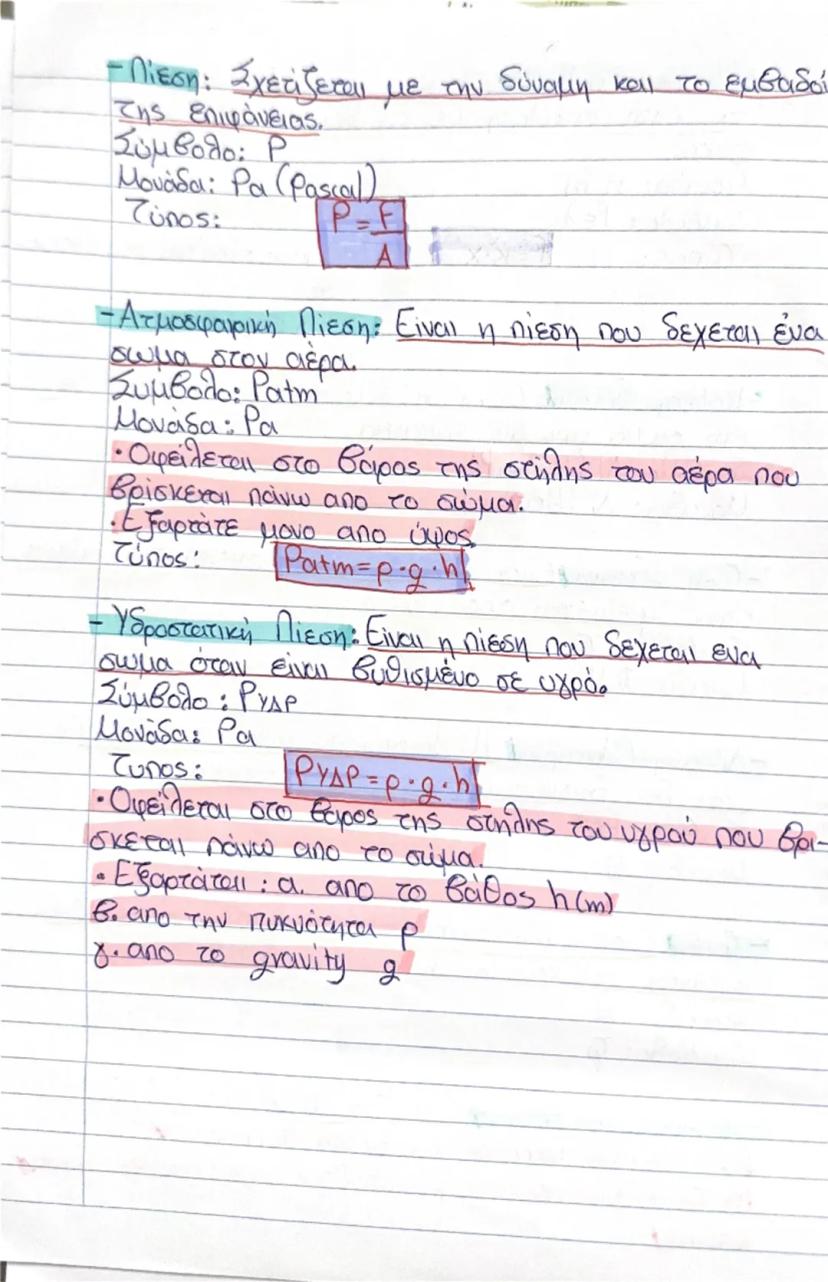 - Πίεση: Σχετίζεται με την δύναμη και το εμβαδό
της επιφάνειας.
Σύμβολο: P
Μονάδα: Pa (Pascal)
Τύπος: P = F/A
- Ατμοσφαιρική Πίεση: Είναι η πίεση που δεχεται ένα
σωμα στον αέρα.
Σύμβολο: Patm
Μονάδα: Pa
• Οφείλεται στο βάρος της στήλης του αέρα που
βρίσκεται πάνω απο το σώμα.
• Εξαρτάτε μονο απο ύψος
Τύπος: Patm = ρ · g · h
- Υδροστατική Πίεση: Είναι η πίεση που δεχεται ενα
σωμα όταν είναι βυθισμένο σε υγρό.
Σύμβολο: PΥΔΡ
Μονάδα: Pa
Τυπος: PΥΔΡ = ρ · g · h
• Οφείλεται στο βαρος της στήλης του υγρού που βρι-
σκεται πάνω απο το σώμα.
• Εξαρτάται: α. απο το βάθος h (m)
β. απο την πυκνότητα ρ
γ. απο το gravity g